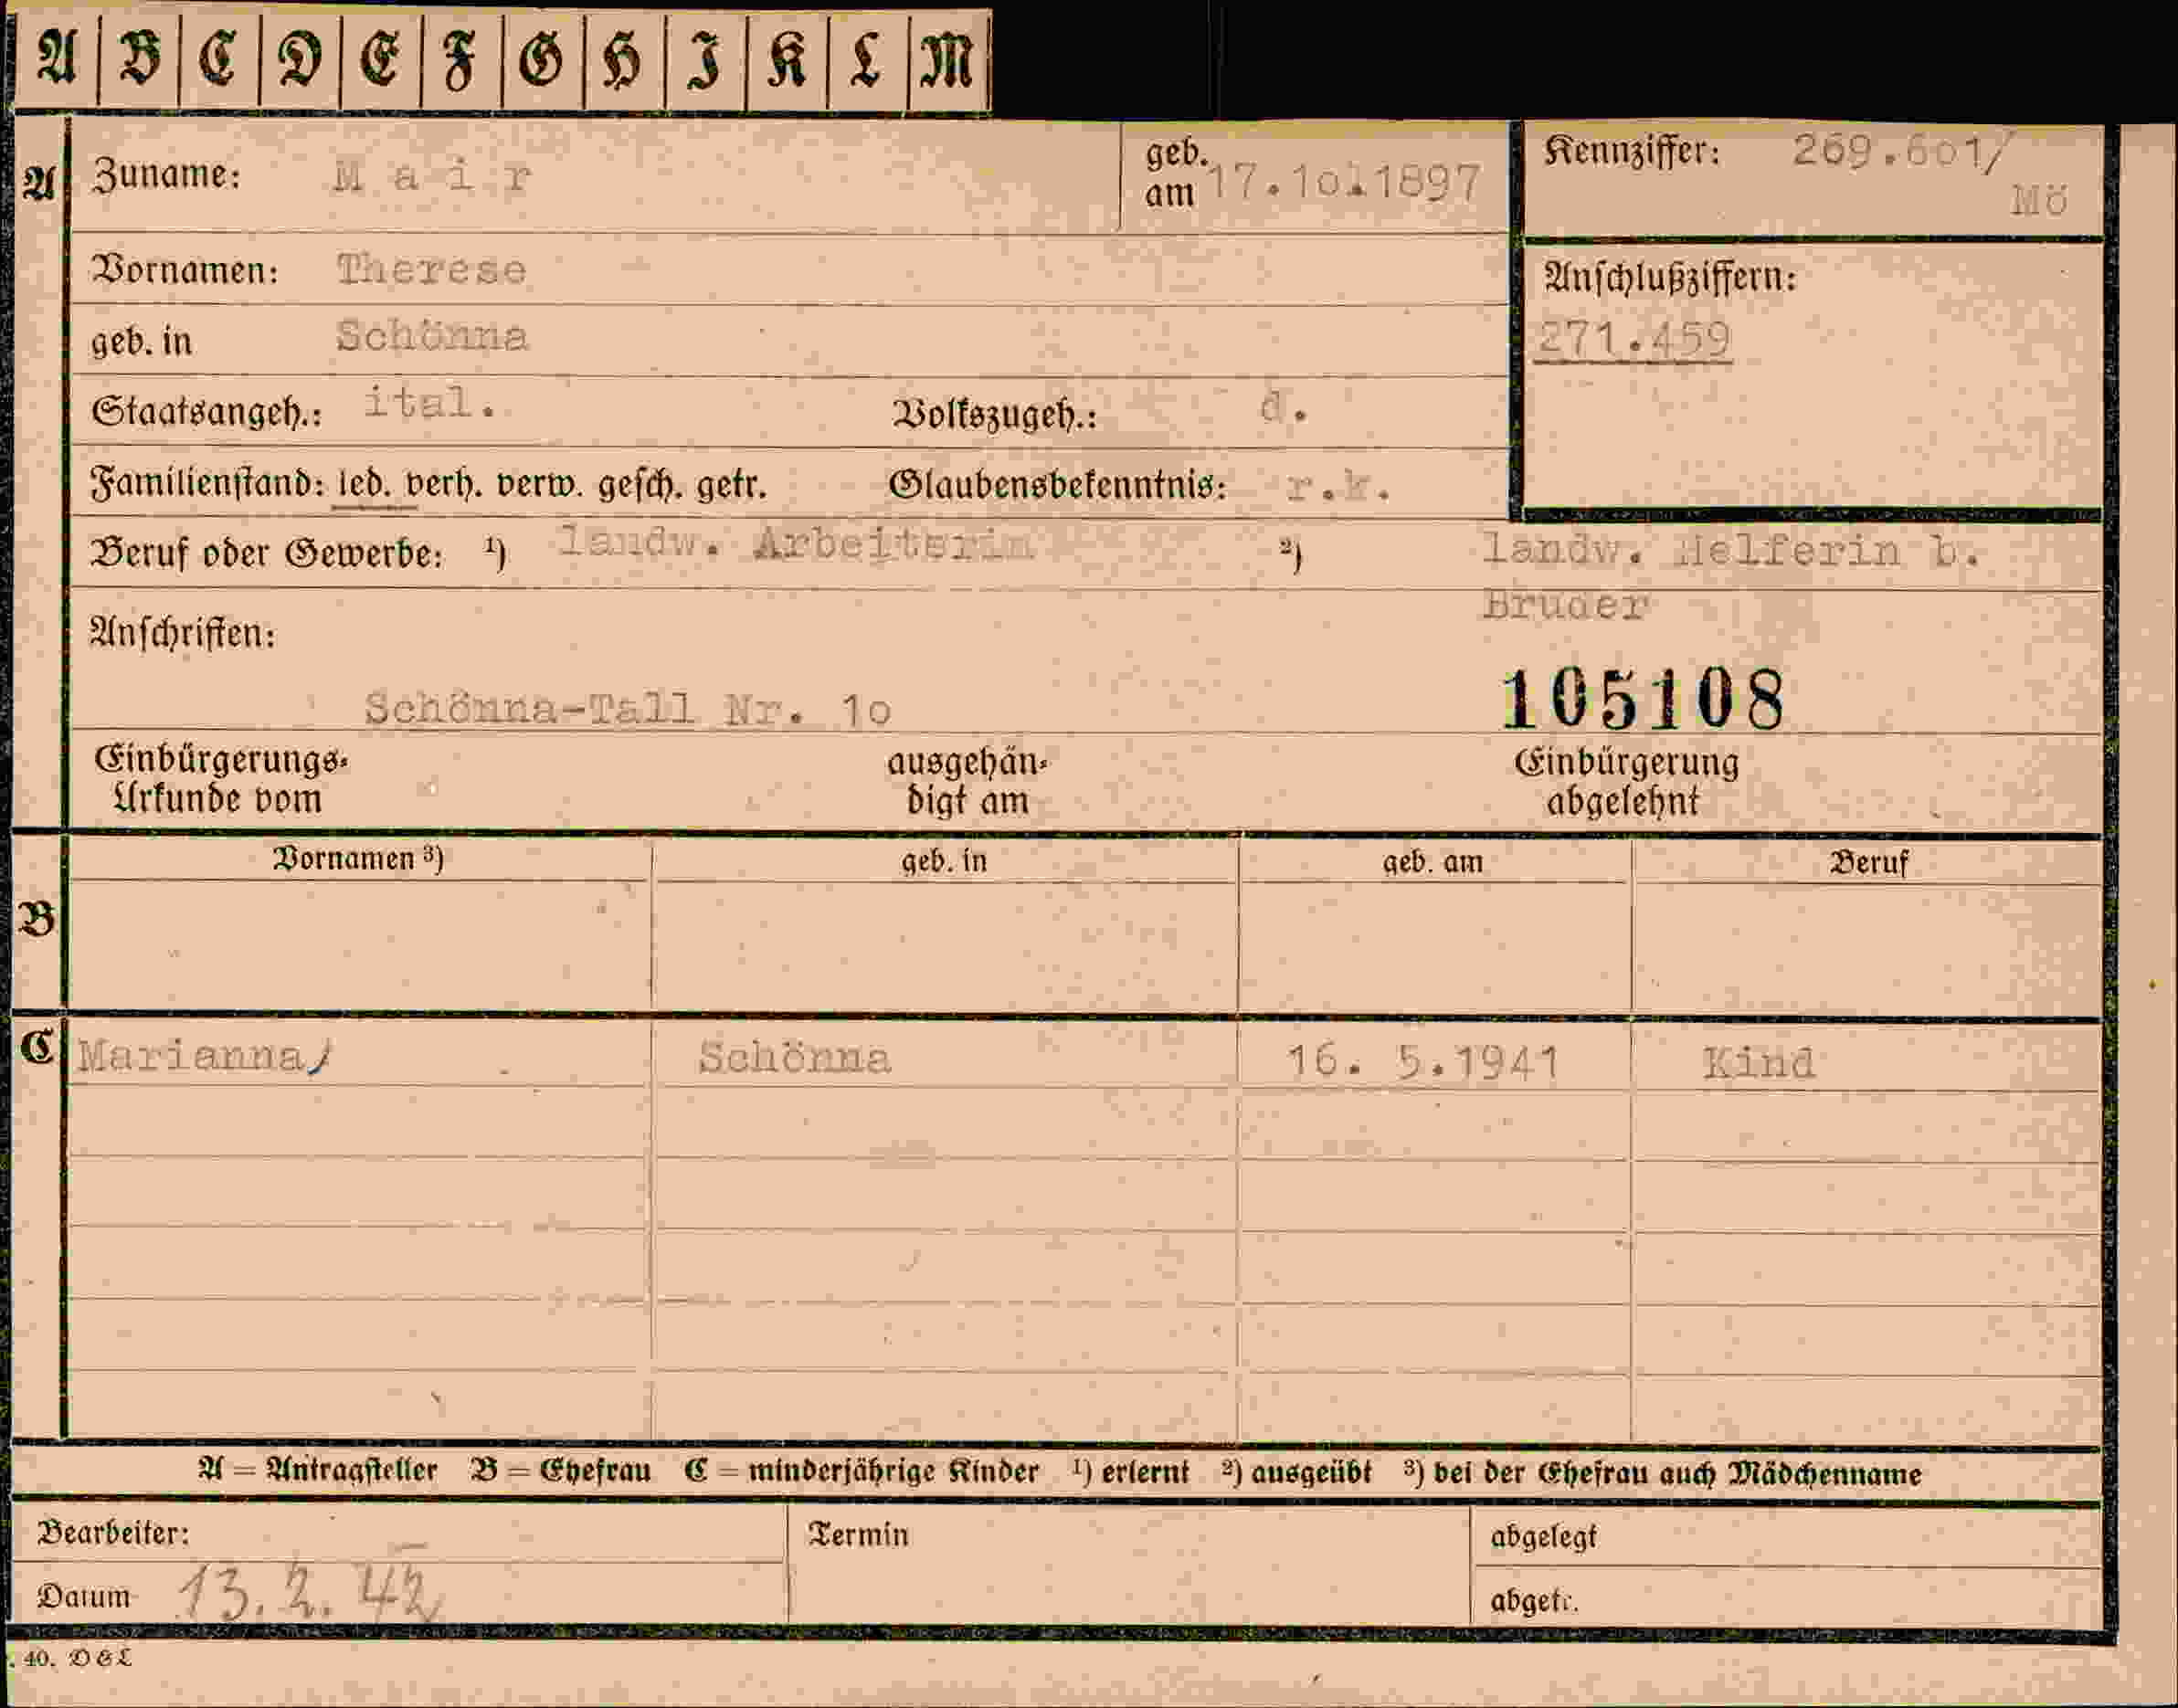 A B C D E F G H I K L M
A Zuname: Mair geb. am 17.10.1897 Kennziffer: 269.601/
Mö
Vornamen: Therese
Anschlußziffern:
geb. in Schönna 271.459
Staatsangeh.: ital. Volkszugeh.: d.
Familienstand: led. verh. verw. gesch. getr. Glaubensbekenntnis: r.k.
Beruf oder Gewerbe: ¹) landw. Arbeiterin ²) landw. Helferin b.
Bruder
Anschriften:
Schönna-Tall Nr. 10 105108
Einbürgerungs- ausgehän- Einbürgerung
Urkunde vom digt am abgelehnt
Vornamen ³) geb. in geb. am Beruf
B
C Marianna/ Schönna 16. 5.1941 Kind
A = Antragsteller B = Ehefrau C = minderjährige Kinder ¹) erlernt ²) ausgeübt ³) bei der Ehefrau auch Mädchenname
Bearbeiter: Termin abgelegt
Datum 13. 2. 42 abgetr.
. 40. D & L